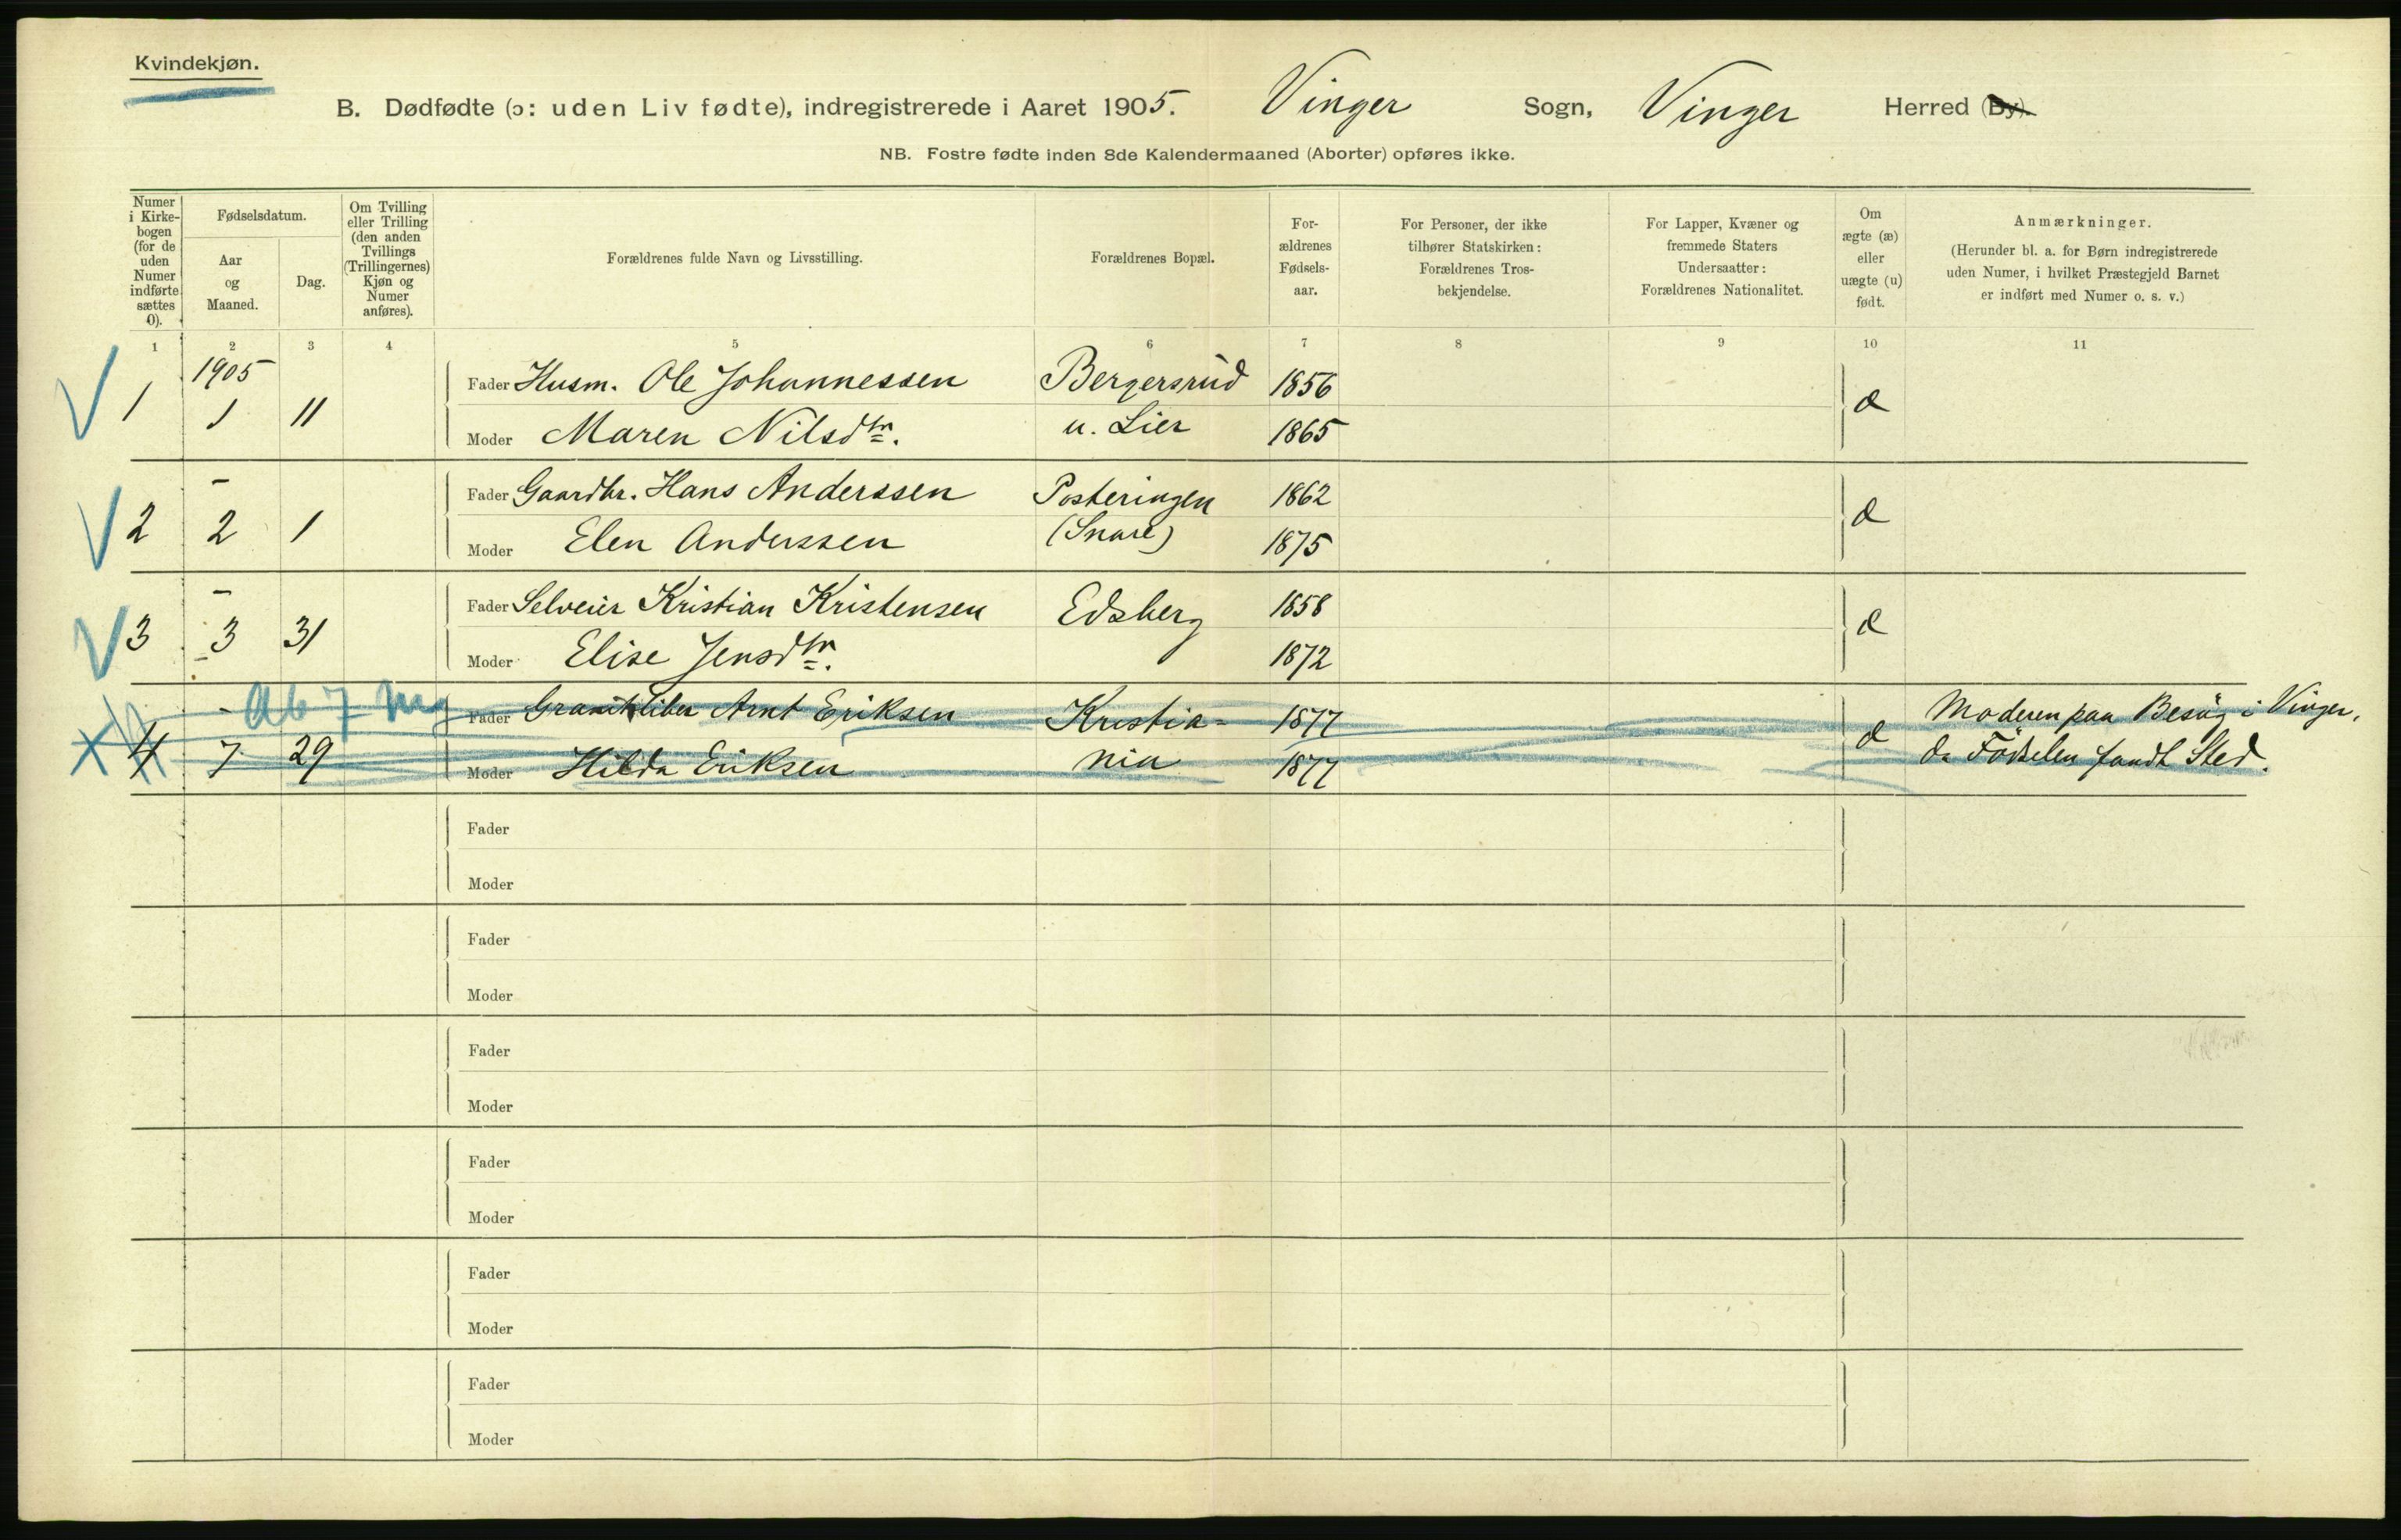 Kvindekjøn.
B. Dødfødte (ɔ: uden Liv fødte), indregistrerede i Aaret 1905. Vinger Sogn, Vinger Herred (By).
NB. Fostre fødte inden 8de Kalendermaaned (Aborter) opføres ikke.
Numer i Kirkebogen (for de uden Numer indførte sættes 0).
Fødselsdatum.
Aar og Maaned.
Dag.
Om Tvilling eller Trilling (den anden Tvillings (Trillingernes) Kjøn og Numer anføres).
Forældrenes fulde Navn og Livsstilling.
Forældrenes Bopæl.
For-
ældrenes
Fødsels-
aar.
For Personer, der ikke
tilhører Statskirken:
Forældrenes Tros-
bekjendelse.
For Lapper, Kvæner og
fremmede Staters
Undersaatter:
Forældrenes Nationalitet.
Om
ægte (æ)
eller
uægte (u)
født.
Anmærkninger.
(Herunder bl. a. for Børn indregistrerede
uden Numer, i hvilket Præstegjeld Barnet
er indført med Numer o. s. v.)
1 2 3 4 5 6 7 8 9 10 11
1905
1 1 11 Fader Husm. Ole Johannessen Bergersrud 1856 æ
Moder Maren Nilsdtr. u. Lier 1865
–
2 2 1 Fader Gaardbr. Hans Anderssen Posteringen 1862 æ
Moder Elen Anderssen (Snare) 1875
–
3 3 31 Fader Selveier Kristian Kristensen Edsberg 1858 æ
Moder Elise Jensdtr. 1872
– Ab 7 Mg
4 7 29 Fader Arnt Eriksen Kristia- 1877 æ Moderen paa Besøg i Vinger,
Moder Hilda Eriksen nia 1877 da Fødselen fandt Sted.
Fader
Moder
Fader
Moder
Fader
Moder
Fader
Moder
Fader
Moder
Fader
Moder